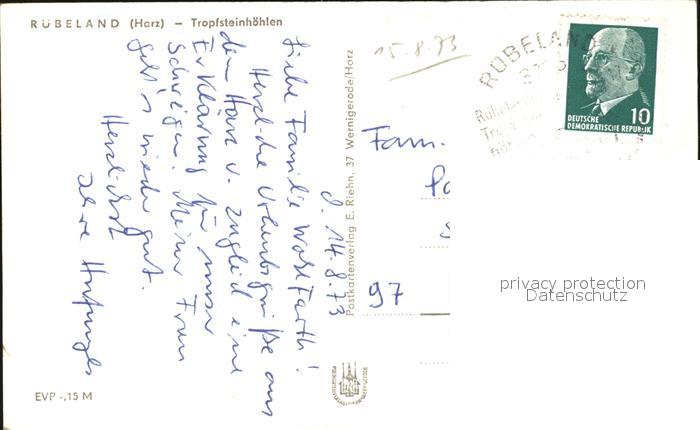 RÜBELAND (Harz) – Tropfsteinhöhlen
d. 14.8.73
Liebe Familie Wohlfarth!
Herzliche Urlaubsgrüße aus
dem Harz u. zugleich eine
Erklärung für unser
Schweigen. Meiner Frau
geht's wieder gut.
Herzlichst
Ihre
EVP -,15 M
Postkartenverlag E. Riehn, 37 Wernigerode/Harz
15.8.73
RÜBELAND
DEUTSCHE
DEMOKRATISCHE REPUBLIK
10
Fam.
97
privacy protection
Datenschutz